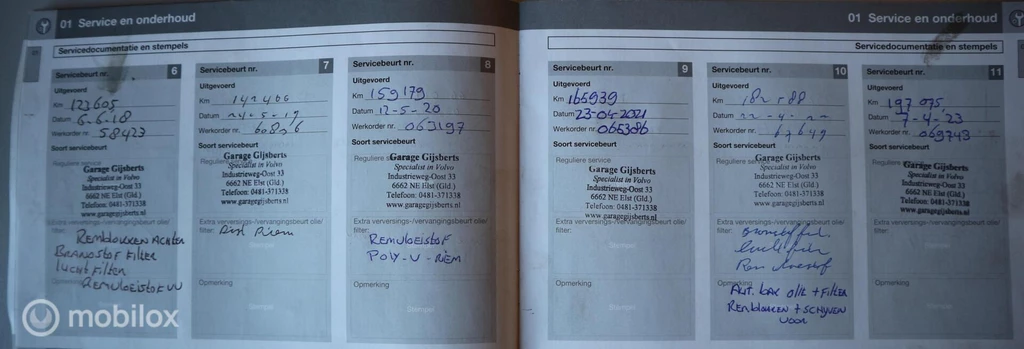 01 Service en onderhoud
Servicedocumentatie en stempels
Servicebeurt nr. 6
Uitgevoerd
Km 123605
Datum 6-6-18
Werkorder nr. 58423
Soort servicebeurt
Reguliere service
Garage Gijsberts
Specialist in Volvo
Industrieweg-Oost 33
6662 NE Elst (Gld.)
Telefoon: 0481-371338
www.garagegijsberts.nl
Extra verversings-/vervangingsbeurt olie/
filter:
REMBLOKKEN ACHTER
BRANDSTOF FILTER
LUCHT FILTER
REMVLOEISTOF
Opmerking
Servicebeurt nr. 7
Uitgevoerd
Km
Datum
Werkorder nr. 60826
Soort servicebeurt
Reguliere
Garage Gijsberts
Specialist in Volvo
Industrieweg-Oost 33
6662 NE Elst (Gld.)
Telefoon: 0481-371338
www.garagegijsberts.nl
Extra verversings-/vervangingsbeurt olie/
filter:
Riem
Stempel
Opmerking
Stempel
Servicebeurt nr. 8
Uitgevoerd
Km 159179
Datum 12-5-20
Werkorder nr. 063197
Soort servicebeurt
Reguliere
Garage Gijsberts
Specialist in Volvo
Industrieweg-Oost 33
6662 NE Elst (Gld.)
Telefoon: 0481-371338
www.garagegijsberts.nl
Extra verversings-/vervangingsbeurt olie/
filter:
REMVLOEISTOF
POLY-V-RIEM
Opmerking
Stempel
01 Service en onderhoud
Servicedocumentatie en stempels
Servicebeurt nr. 9
Uitgevoerd
Km 165939
Datum 23-04-2021
Werkorder nr. 065386
Soort servicebeurt
Reguliere service
Garage Gijsberts
Specialist in Volvo
Industrieweg-Oost 33
6662 NE Elst (Gld.)
Telefoon: 0481-371338
www.garagegijsberts.nl
Extra verversings-/vervangingsbeurt olie/
filter:
Stempel
Opmerking
Stempel
Servicebeurt nr. 10
Uitgevoerd
Km
Datum
Werkorder nr. 67649
Soort servicebeurt
Reguliere
Garage Gijsberts
Specialist in Volvo
Industrieweg-Oost 33
6662 NE Elst (Gld.)
Telefoon: 0481-371338
www.garagegijsberts.nl
Extra verversings-/vervangingsbeurt olie/
filter:
Opmerking
AUT. BAK OLIE + FILTER
REMBLOKKEN + SCHIJVEN
VOOR
Servicebeurt nr. 11
Uitgevoerd
Km 197075
Datum 7-4-23
Werkorder nr. 069743
Soort servicebeurt
Reguliere
Garage Gijsberts
Specialist in Volvo
Industrieweg-Oost 33
6662 NE Elst (Gld.)
Telefoon: 0481-371338
www.garagegijsberts.nl
Extra verversings-/vervangingsbeurt olie/
filter:
Stempel
Opmerking
Stempel
mobilox